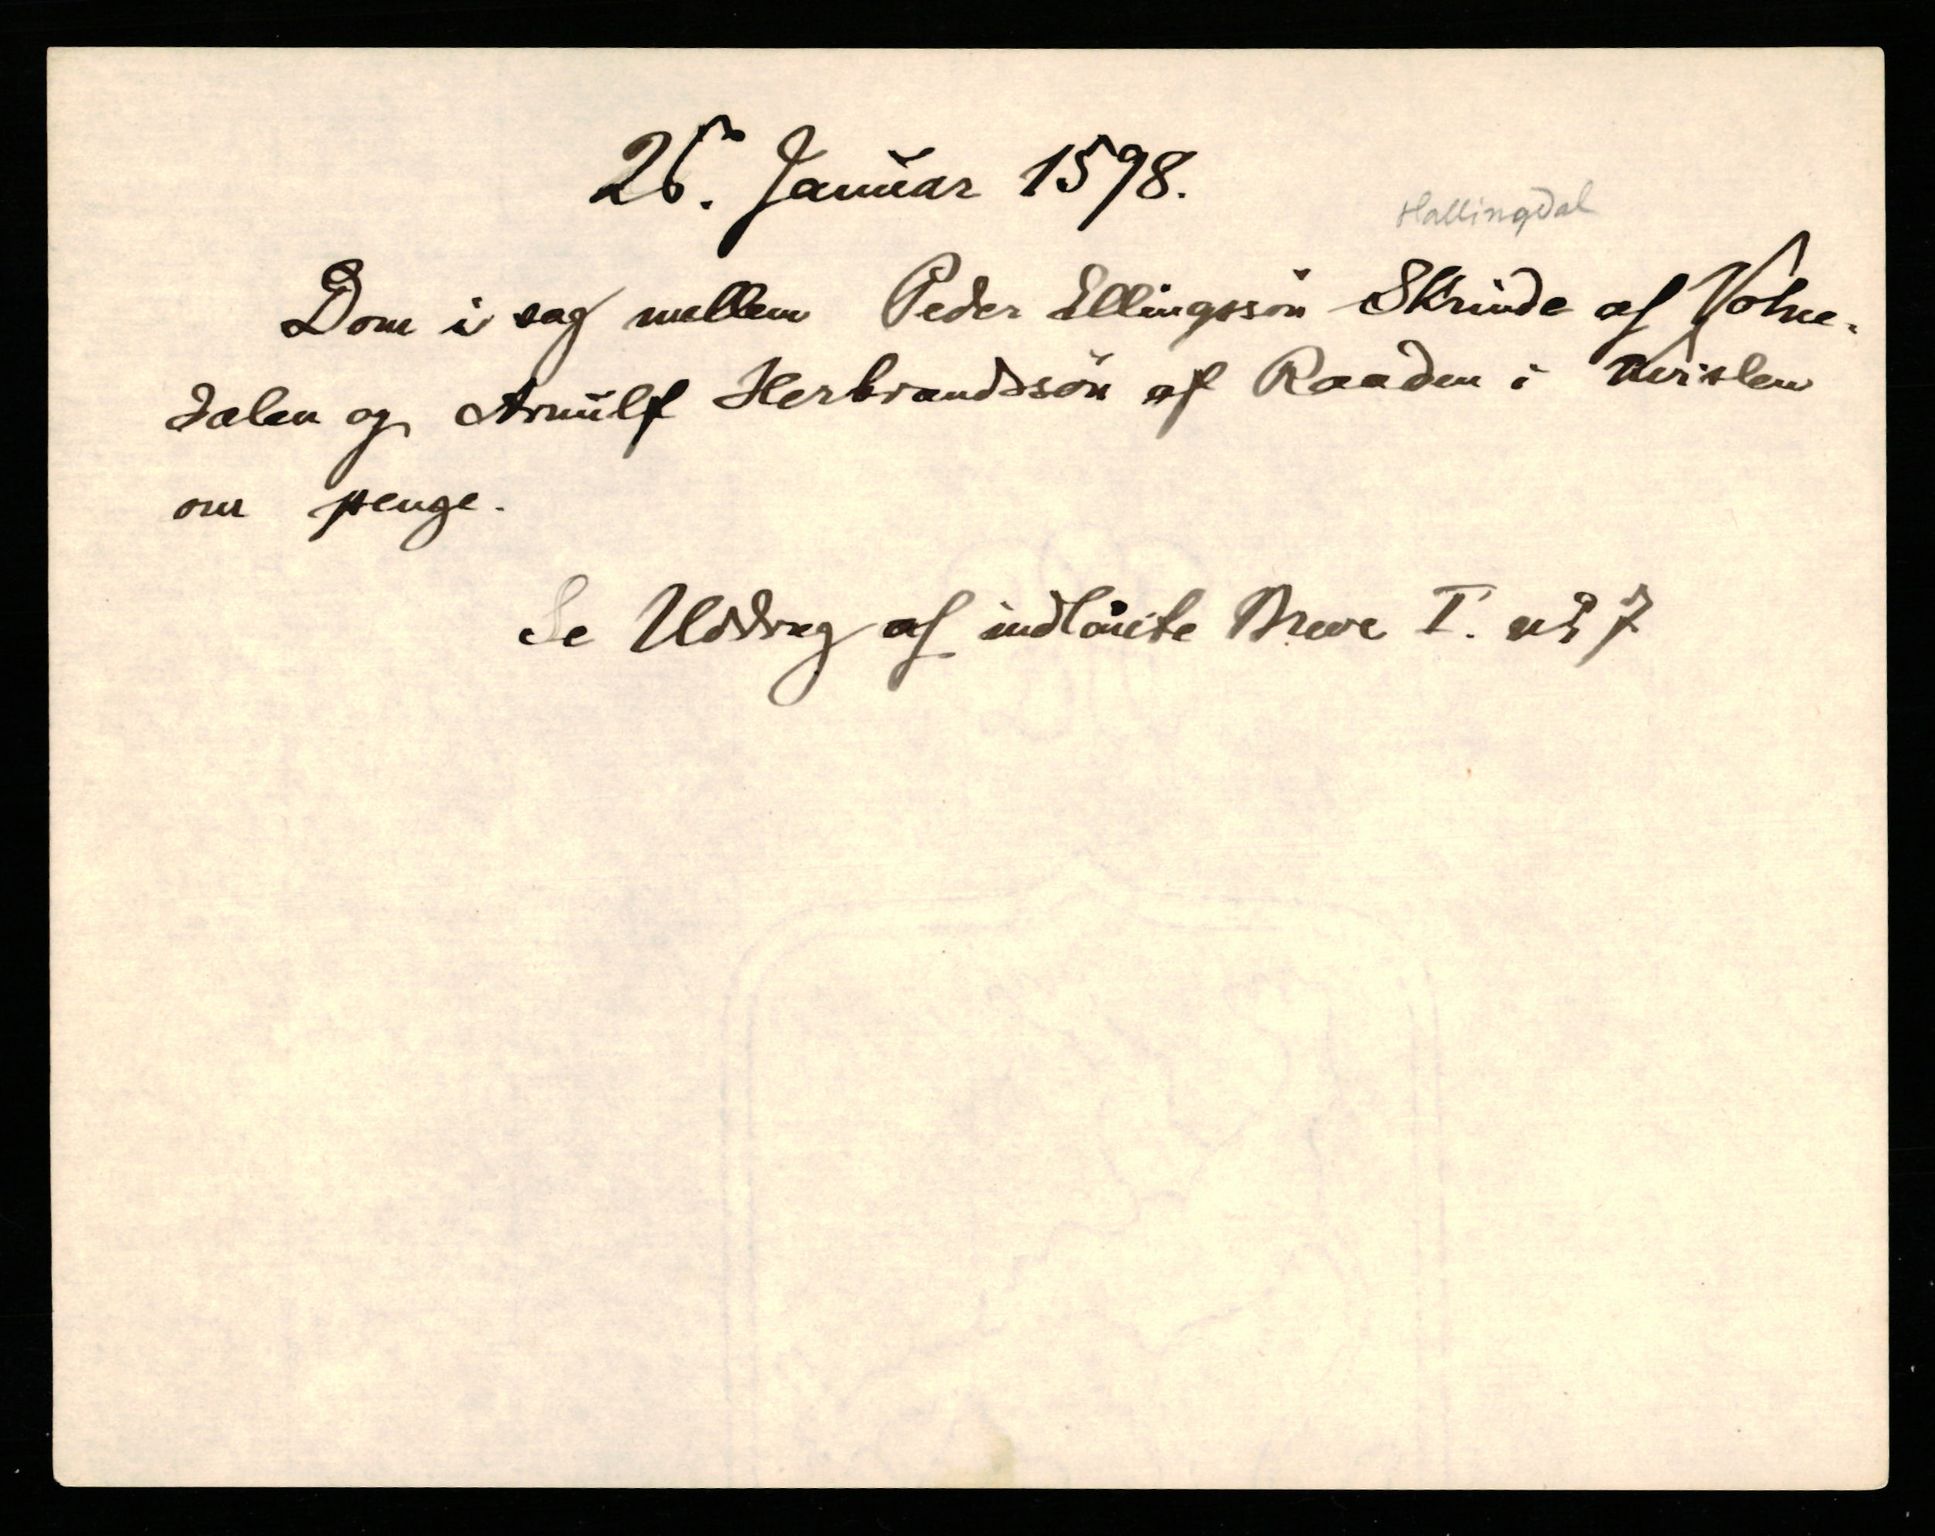 25. Januar 1598.
Hallingdal
Dom i sag mellem Peder Ellingssön Skrinde af Volne-
dalen og Arnulf Herbrandssön af Raaden i
om penge.
Se Uddrag af indlånte Breve I. nº 7